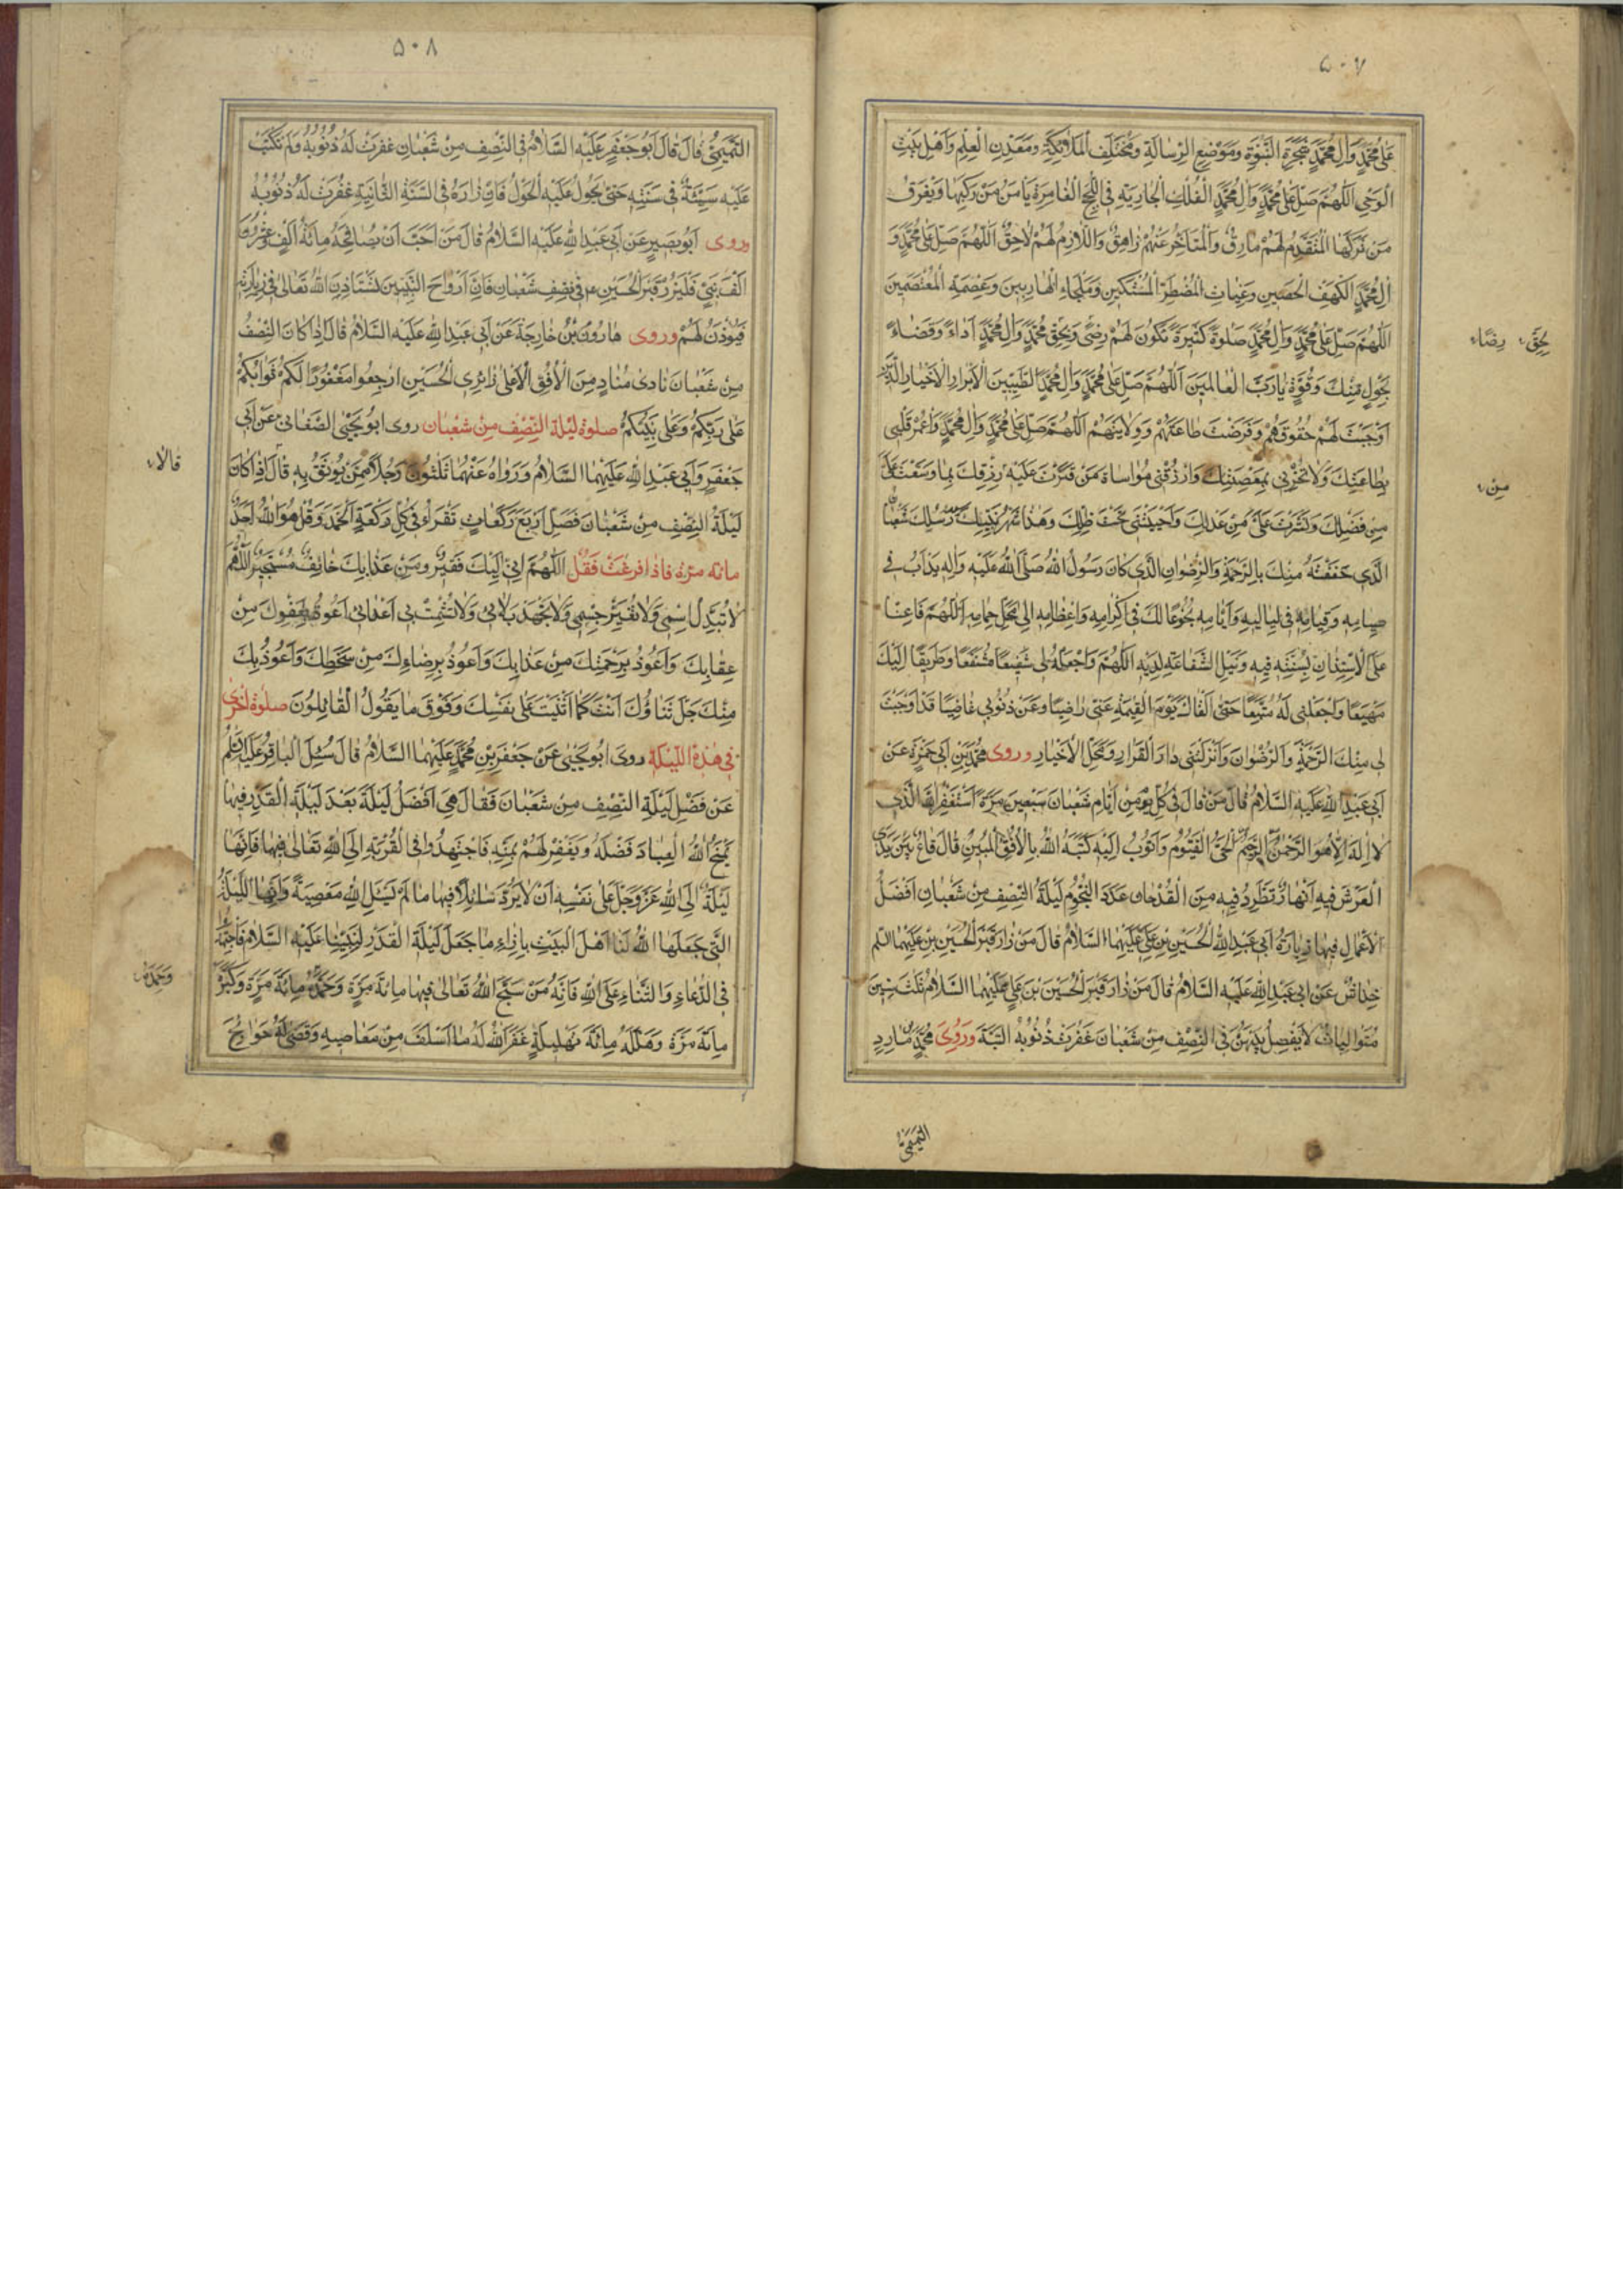 ٥٠٧
عَلَىٰ مُحَمَّدٍ وَآلِ مُحَمَّدٍ شَجَرَةِ النُّبُوَّةِ وَمَوْضِعِ الرِّسَالَةِ وَمُخْتَلَفِ الْمَلَائِكَةِ وَمَعْدِنِ الْعِلْمِ وَأَهْلِ بَيْتِ
الْوَحْيِ اَللّٰهُمَّ صَلِّ عَلَىٰ مُحَمَّدٍ وَآلِ مُحَمَّدٍ الْفُلْكِ الْجَارِيَةِ فِي اللُّجَجِ الْغَامِرَةِ يَأْمَنُ مَنْ رَكِبَهَا وَيَغْرَقُ
مَنْ تَرَكَهَا الْمُتَقَدِّمُ لَهُمْ مَارِقٌ وَالْمُتَأَخِّرُ عَنْهُمْ زَاهِقٌ وَاللَّازِمُ لَهُمْ لَاحِقٌ اَللّٰهُمَّ صَلِّ عَلَىٰ مُحَمَّدٍ وَ
آلِ مُحَمَّدٍ الْكَهْفِ الْحَصِينِ وَغِيَاثِ الْمُضْطَرِّ الْمُسْتَكِينِ وَمَلْجَاءِ الْهَارِبِينَ وَعِصْمَةِ الْمُعْتَصِمِينَ
اَللّٰهُمَّ صَلِّ عَلَىٰ مُحَمَّدٍ وَآلِ مُحَمَّدٍ صَلٰوةً كَثِيرَةً تَكُونُ لَهُمْ رِضًى وَبِحَقِّ مُحَمَّدٍ وَآلِ مُحَمَّدٍ أَدَاءً وَقَضَاءً
بِحَوْلٍ مِنْكَ وَقُوَّةٍ يَا رَبَّ الْعَالَمِينَ اَللّٰهُمَّ صَلِّ عَلَىٰ مُحَمَّدٍ وَآلِ مُحَمَّدٍ الطَّيِّبِينَ الْأَبْرَارِ الْأَخْيَارِ الَّذِينَ
أَوْجَبْتَ لَهُمْ حُقُوقَهُمْ وَفَرَضْتَ طَاعَتَهُمْ وَوِلَايَتَهُمْ اَللّٰهُمَّ صَلِّ عَلَىٰ مُحَمَّدٍ وَآلِ مُحَمَّدٍ وَاعْمُرْ قَلْبِي
بِطَاعَتِكَ وَلَا تُخْزِنِي بِمَعْصِيَتِكَ وَارْزُقْنِي مُوَاسَاةَ مَنْ قَتَّرْتَ عَلَيْهِ رِزْقَكَ بِمَا وَسَّعْتَ عَلَيَّ
مِنْ فَضْلِكَ وَنَشَرْتَ عَلَيَّ مِنْ عَدْلِكَ وَأَحْيَيْتَنِي تَحْتَ ظِلِّكَ وَهٰذَا شَهْرُ نَبِيِّكَ سَيِّدِ رُسُلِكَ شَعْبَانُ
الَّذِي حَفَفْتَهُ مِنْكَ بِالرَّحْمَةِ وَالرِّضْوَانِ الَّذِي كَانَ رَسُولُ اللّٰهِ صَلَّى اللّٰهُ عَلَيْهِ وَآلِهِ يَدْأَبُ فِي
صِيَامِهِ وَقِيَامِهِ فِي لَيَالِيهِ وَأَيَّامِهِ بُخُوعًا لَكَ فِي إِكْرَامِهِ وَإِعْظَامِهِ إِلَىٰ مَحَلِّ حِمَامِهِ اَللّٰهُمَّ فَأَعِنَّا
عَلَى الْاِسْتِنَانِ بِسُنَّتِهِ فِيهِ وَنَيْلِ الشَّفَاعَةِ لَدَيْهِ اَللّٰهُمَّ وَاجْعَلْهُ لِي شَفِيعًا مُشَفَّعًا وَطَرِيقًا إِلَيْكَ
مَهْيَعًا وَاجْعَلْنِي لَهُ مُتَّبِعًا حَتَّىٰ أَلْقَاكَ يَوْمَ الْقِيٰمَةِ عَنِّي رَاضِيًا وَعَنْ ذُنُوبِي غَاضِيًا قَدْ أَوْجَبْتَ
لِي مِنْكَ الرَّحْمَةَ وَالرِّضْوَانَ وَأَنْزَلْتَنِي دَارَ الْقَرَارِ وَمَحَلَّ الْأَخْيَارِ وروى مُحَمَّدُ بْنُ أَبِي حَمْزَةَ عَنْ
أَبِي عَبْدِ اللّٰهِ عَلَيْهِ السَّلَامُ قَالَ مَنْ قَالَ فِي كُلِّ يَوْمٍ مِنْ أَيَّامِ شَعْبَانَ سَبْعِينَ مَرَّةً أَسْتَغْفِرُ اللّٰهَ الَّذِي
لَا إِلٰهَ إِلَّا هُوَ الرَّحْمٰنُ الرَّحِيمُ الْحَيُّ الْقَيُّومُ وَأَتُوبُ إِلَيْهِ كَتَبَهُ اللّٰهُ بِالْأُفُقِ الْمُبِينِ قَالَ قَاعٌ بَيْنَ يَدَيِ
الْعَرْشِ فِيهِ أَنْهَارٌ تَطَّرِدُ فِيهِ مِنَ الْقُدْحَانِ عَدَدَ النُّجُومِ لَيْلَةُ النِّصْفِ مِنْ شَعْبَانَ أَفْضَلُ
الْأَعْمَالِ فِيهَا زِيَارَةُ أَبِي عَبْدِ اللّٰهِ الْحُسَيْنِ بْنِ عَلِيٍّ عَلَيْهِمَا السَّلَامُ قَالَ مَنْ زَارَ قَبْرَ الْحُسَيْنِ بْنِ عَلَيْهِمَا السَّلم
خِدَاشٌ عَنْ أَبِي عَبْدِ اللّٰهِ عَلَيْهِ السَّلَامُ قَالَ مَنْ زَارَ قَبْرَ الْحُسَيْنِ بْنِ عَلِيٍّ عَلَيْهِمَا السَّلَامُ ثَلٰثَ سِنِينَ
مُتَوَالِيَاتٍ لَا يَفْصِلُ بَيْنَهُنَّ فِي النِّصْفِ مِنْ شَعْبَانَ غُفِرَتْ ذُنُوبُهُ الْبَتَّةَ وَرَوَىٰ مُحَمَّدُ مَارِدٍ
بِحَقِّ
رِضًاء
مِنْ
التَّمِيمِيُّ
٥٠٨
التَّمِيمِيُّ قَالَ قَالَ أَبُو جَعْفَرٍ عَلَيْهِ السَّلَامُ فِي النِّصْفِ مِنْ شَعْبَانَ غُفِرَتْ لَهُ ذُنُوبُهُ وَلَمْ تُكْتَبْ
عَلَيْهِ سَيِّئَةٌ فِي سَنَتِهِ حَتَّىٰ يَحُولَ عَلَيْهِ الْحَوْلُ فَإِنْ زَارَهُ فِي السَّنَةِ الثَّانِيَةِ غُفِرَتْ لَهُ ذُنُوبُهُ
وروى أَبُو بَصِيرٍ عَنْ أَبِي عَبْدِ اللّٰهِ عَلَيْهِ السَّلَامُ قَالَ مَنْ أَحَبَّ أَنْ يُصَافِحَهُ مِائَةُ أَلْفٍ وَعِشْرُونَ
أَلْفَ نَبِيٍّ فَلْيَزُرْ قَبْرَ الْحُسَيْنِ ع فِي نِصْفِ شَعْبَانَ فَإِنَّ أَرْوَاحَ النَّبِيِّينَ تَسْتَأْذِنُ اللّٰهَ تَعَالَىٰ فِي زِيَارَتِهِ
فَيُؤْذَنُ لَهُمْ وروى هَارُونُ بْنُ خَارِجَةَ عَنْ أَبِي عَبْدِ اللّٰهِ عَلَيْهِ السَّلَامُ قَالَ إِذَا كَانَ النِّصْفُ
مِنْ شَعْبَانَ نَادَىٰ مُنَادٍ مِنَ الْأُفُقِ الْأَعْلَىٰ زَائِرِي الْحُسَيْنِ ارْجِعُوا مَغْفُورًا لَكُمْ ثَوَابُكُمْ
عَلَىٰ رَبِّكُمْ وَعَلَىٰ نَبِيِّكُمْ صلوة لَيْلَةِ النِّصْفِ مِنْ شَعْبَان روى أبو يَحْيَى الصَّنْعَانِيُّ عَنْ أَبِي
جَعْفَرٍ وَأَبِي عَبْدِ اللّٰهِ عَلَيْهِمَا السَّلَامُ وَرَوَاهُ عَنْهُمَا ثَلٰثُونَ رَجُلًا مِمَّنْ يُوثَقُ بِهِ قَالَ إِذَا كَانَ
لَيْلَةُ النِّصْفِ مِنْ شَعْبَانَ فَصَلِّ أَرْبَعَ رَكَعَاتٍ تَقْرَأُ فِي كُلِّ رَكْعَةٍ الْحَمْدَ وَقُلْ هُوَ اللّٰهُ أَحَدٌ
مائة مرّة فاذا فرغت فقل اَللّٰهُمَّ إِنِّي إِلَيْكَ فَقِيرٌ وَمِنْ عَذَابِكَ خَائِفٌ مُسْتَجِيرٌ اَللّٰهُمَّ
لَا تُبَدِّلْ اِسْمِي وَلَا تُغَيِّرْ جِسْمِي وَلَا تَجْهَدْ بَلَائِي وَلَا تُشْمِتْ بِي أَعْدَائِي أَعُوذُ بِعَفْوِكَ مِنْ
عِقَابِكَ وَأَعُوذُ بِرَحْمَتِكَ مِنْ عَذَابِكَ وَأَعُوذُ بِرِضَاءِكَ مِنْ سَخَطِكَ وَأَعُوذُ بِكَ
مِنْكَ جَلَّ ثَنَاؤُكَ أَنْتَ كَمَا أَثْنَيْتَ عَلَىٰ نَفْسِكَ وَفَوْقَ مَا يَقُولُ الْقَائِلُونَ صلوة اخرى
في هٰذِهِ اللَّيْلَة روى أبو يَحْيَىٰ عَنْ جَعْفَرِ بْنِ مُحَمَّدٍ عَلَيْهِمَا السَّلَامُ قَالَ سُئِلَ الْبَاقِرُ عَلَيْهِ السَّلم
عَنْ فَضْلِ لَيْلَةِ النِّصْفِ مِنْ شَعْبَانَ فَقَالَ هِيَ أَفْضَلُ لَيْلَةٍ بَعْدَ لَيْلَةِ الْقَدْرِ فِيهَا
يَمْنَحُ اللّٰهُ الْعِبَادَ فَضْلَهُ وَيَغْفِرُ لَهُمْ بِمَنِّهِ فَاجْتَهِدُوا فِي الْقُرْبَةِ إِلَى اللّٰهِ تَعَالَىٰ فِيهَا فَإِنَّهَا
لَيْلَةٌ آلَى اللّٰهُ عَزَّ وَجَلَّ عَلَىٰ نَفْسِهِ أَنْ لَا يَرُدَّ سَائِلًا فِيهَا مَا لَمْ يَسْئَلِ اللّٰهَ مَعْصِيَةً وَإِنَّهَا اللَّيْلَةُ
الَّتِي جَعَلَهَا اللّٰهُ لَنَا أَهْلَ الْبَيْتِ بِإِزَاءِ مَا جَعَلَ لَيْلَةَ الْقَدْرِ لِنَبِيِّنَا عَلَيْهِ السَّلَامُ فَاجْتَهِدُوا
فِي الدُّعَاءِ وَالثَّنَاءِ عَلَى اللّٰهِ فَإِنَّهُ مَنْ سَبَّحَ اللّٰهَ تَعَالَىٰ فِيهَا مِائَةَ مَرَّةٍ وَحَمَّدَهُ مِائَةَ مَرَّةٍ وَكَبَّرَهُ
مِائَةَ مَرَّةٍ وَهَلَّلَهُ مِائَةَ تَهْلِيلَةٍ غَفَرَ اللّٰهُ لَهُ مَا أَسْلَفَ مِنْ مَعَاصِيهِ وَقَضَىٰ لَهُ حَوَائِجَ
قالا
وَحَمِدَهُ